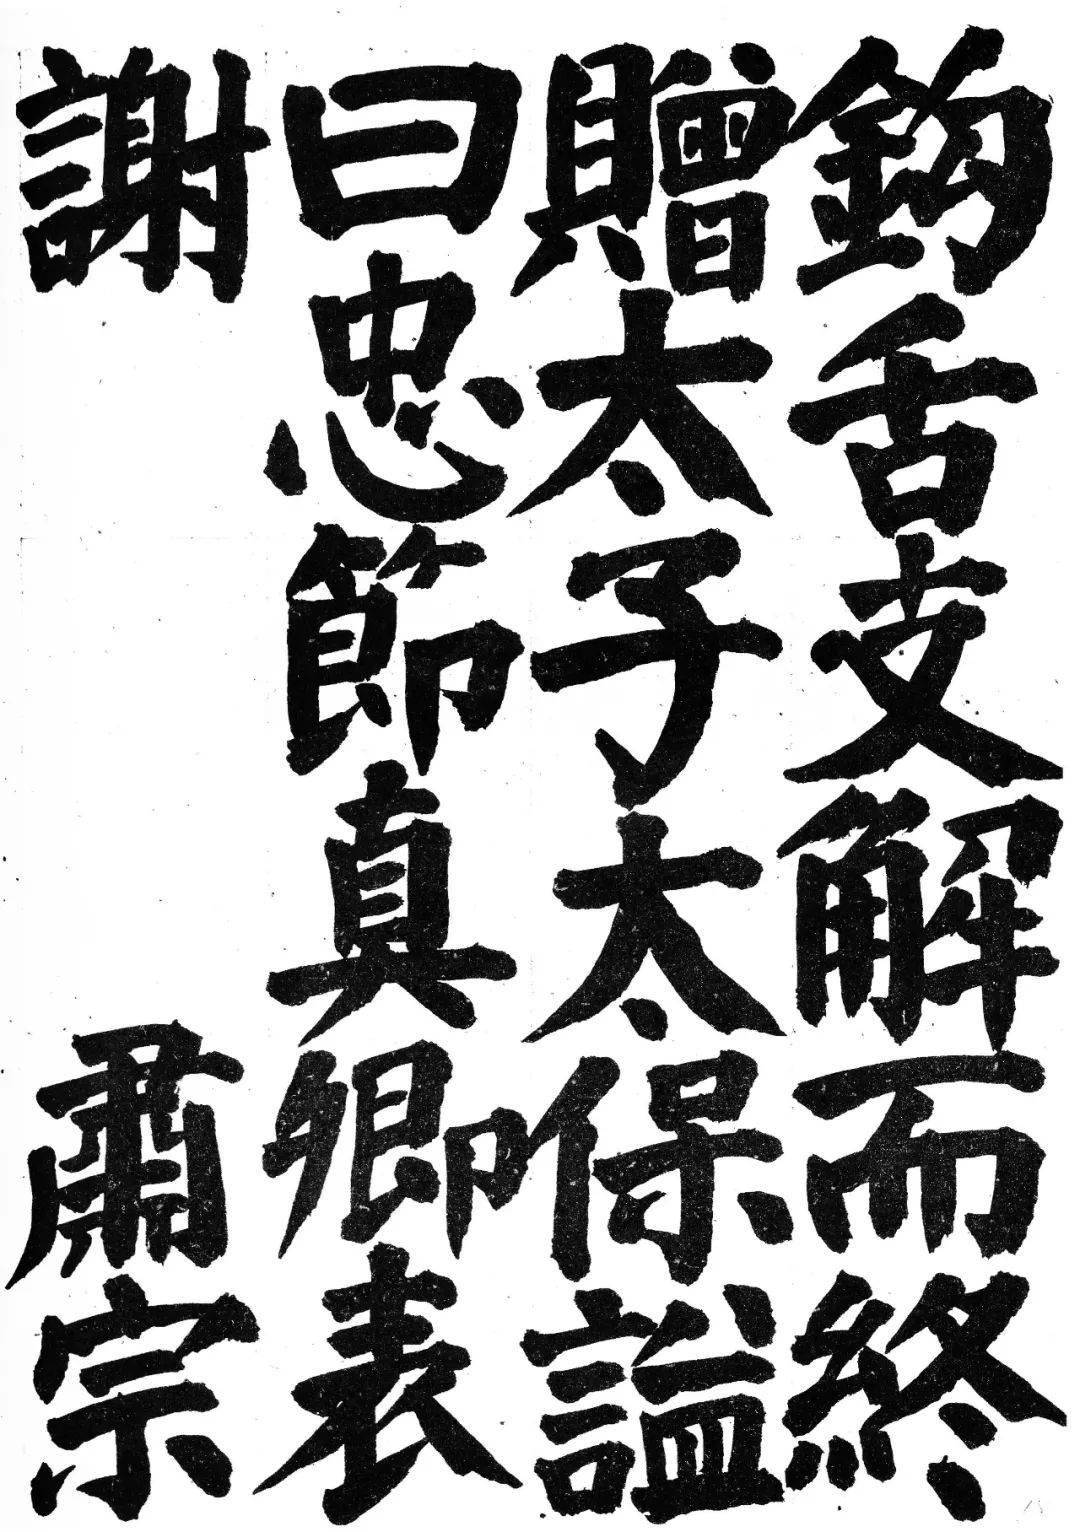 鈎舌支解而終
贈太子太保謚
曰忠節真卿表
謝 肅宗